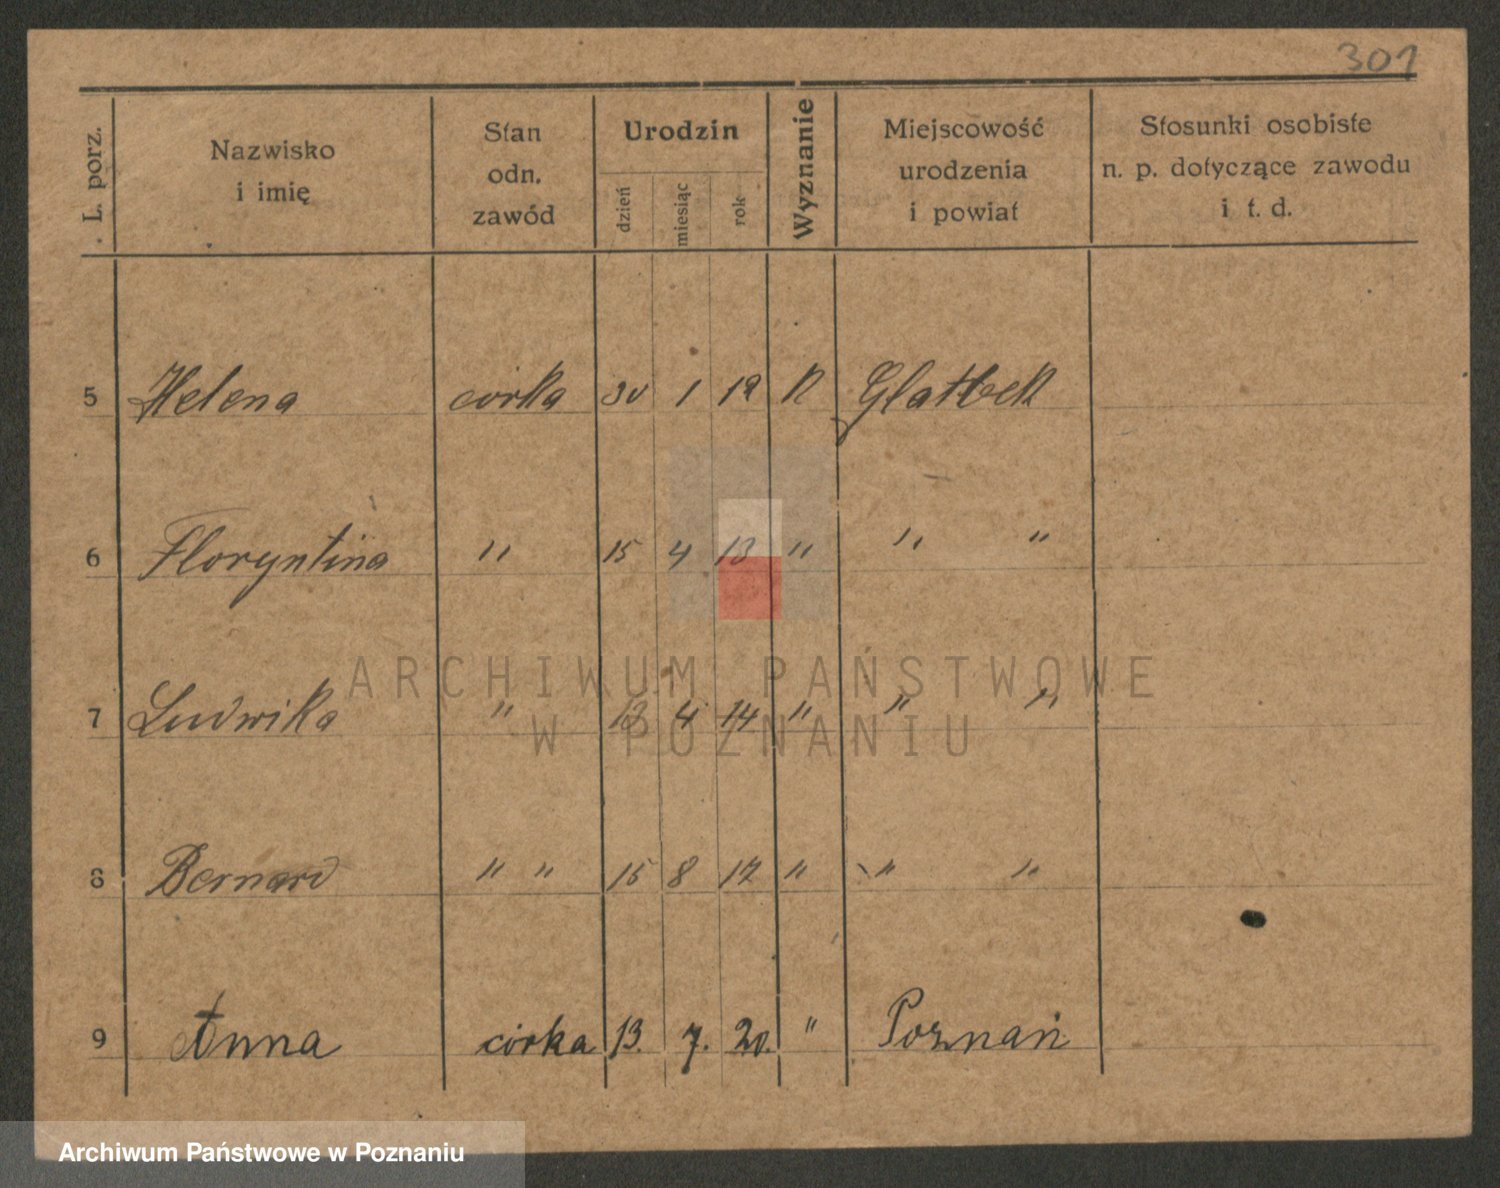 301
L. porz.
Nazwisko
i imię
Stan
odn.
zawód
Urodzin
dzień
miesiąc
rok
Wyznanie
Miejscowość
urodzenia
i powiat
Stosunki osobiste
n. p. dotyczące zawodu
i t. d.
5 Helena córka 30 1 12 K Glattbek
6 Floryntina " 15 4 13 " " "
7 Ludwika " 13 4 14 " " "
8 Bernard " " 15 8 17 " " "
9 Anna córka 13. 7. 20. " Poznań
ARCHIWUM PAŃSTWOWE
W POZNANIU
Archiwum Państwowe w Poznaniu